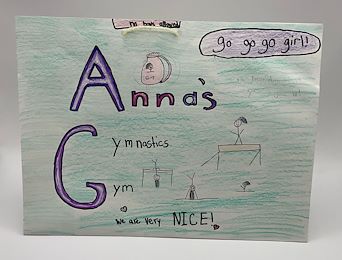 no boys allowed!
go go go girl!
Anna's
Gymnastics
Gym
we are very NICE!